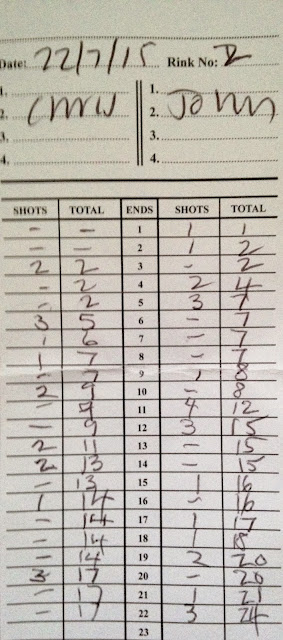 Date: 22/7/15 Rink No: V
1. 1.
2. Chris 2. John
3. 3.
4. 4.
SHOTS TOTAL ENDS SHOTS TOTAL
- - 1 1 1
- - 2 1 2
2 2 3 - 2
- 2 4 2 4
- 2 5 3 7
3 5 6 - 7
1 6 7 - 7
1 7 8 - 7
- 7 9 1 8
2 9 10 - 8
- 9 11 4 12
- 9 12 3 15
2 11 13 - 15
2 13 14 - 15
- 13 15 1 16
1 14 16 - 16
- 14 17 1 17
- 14 18 1 18
- 14 19 2 20
3 17 20 - 20
- 17 21 1 21
- 17 22 3 24
23